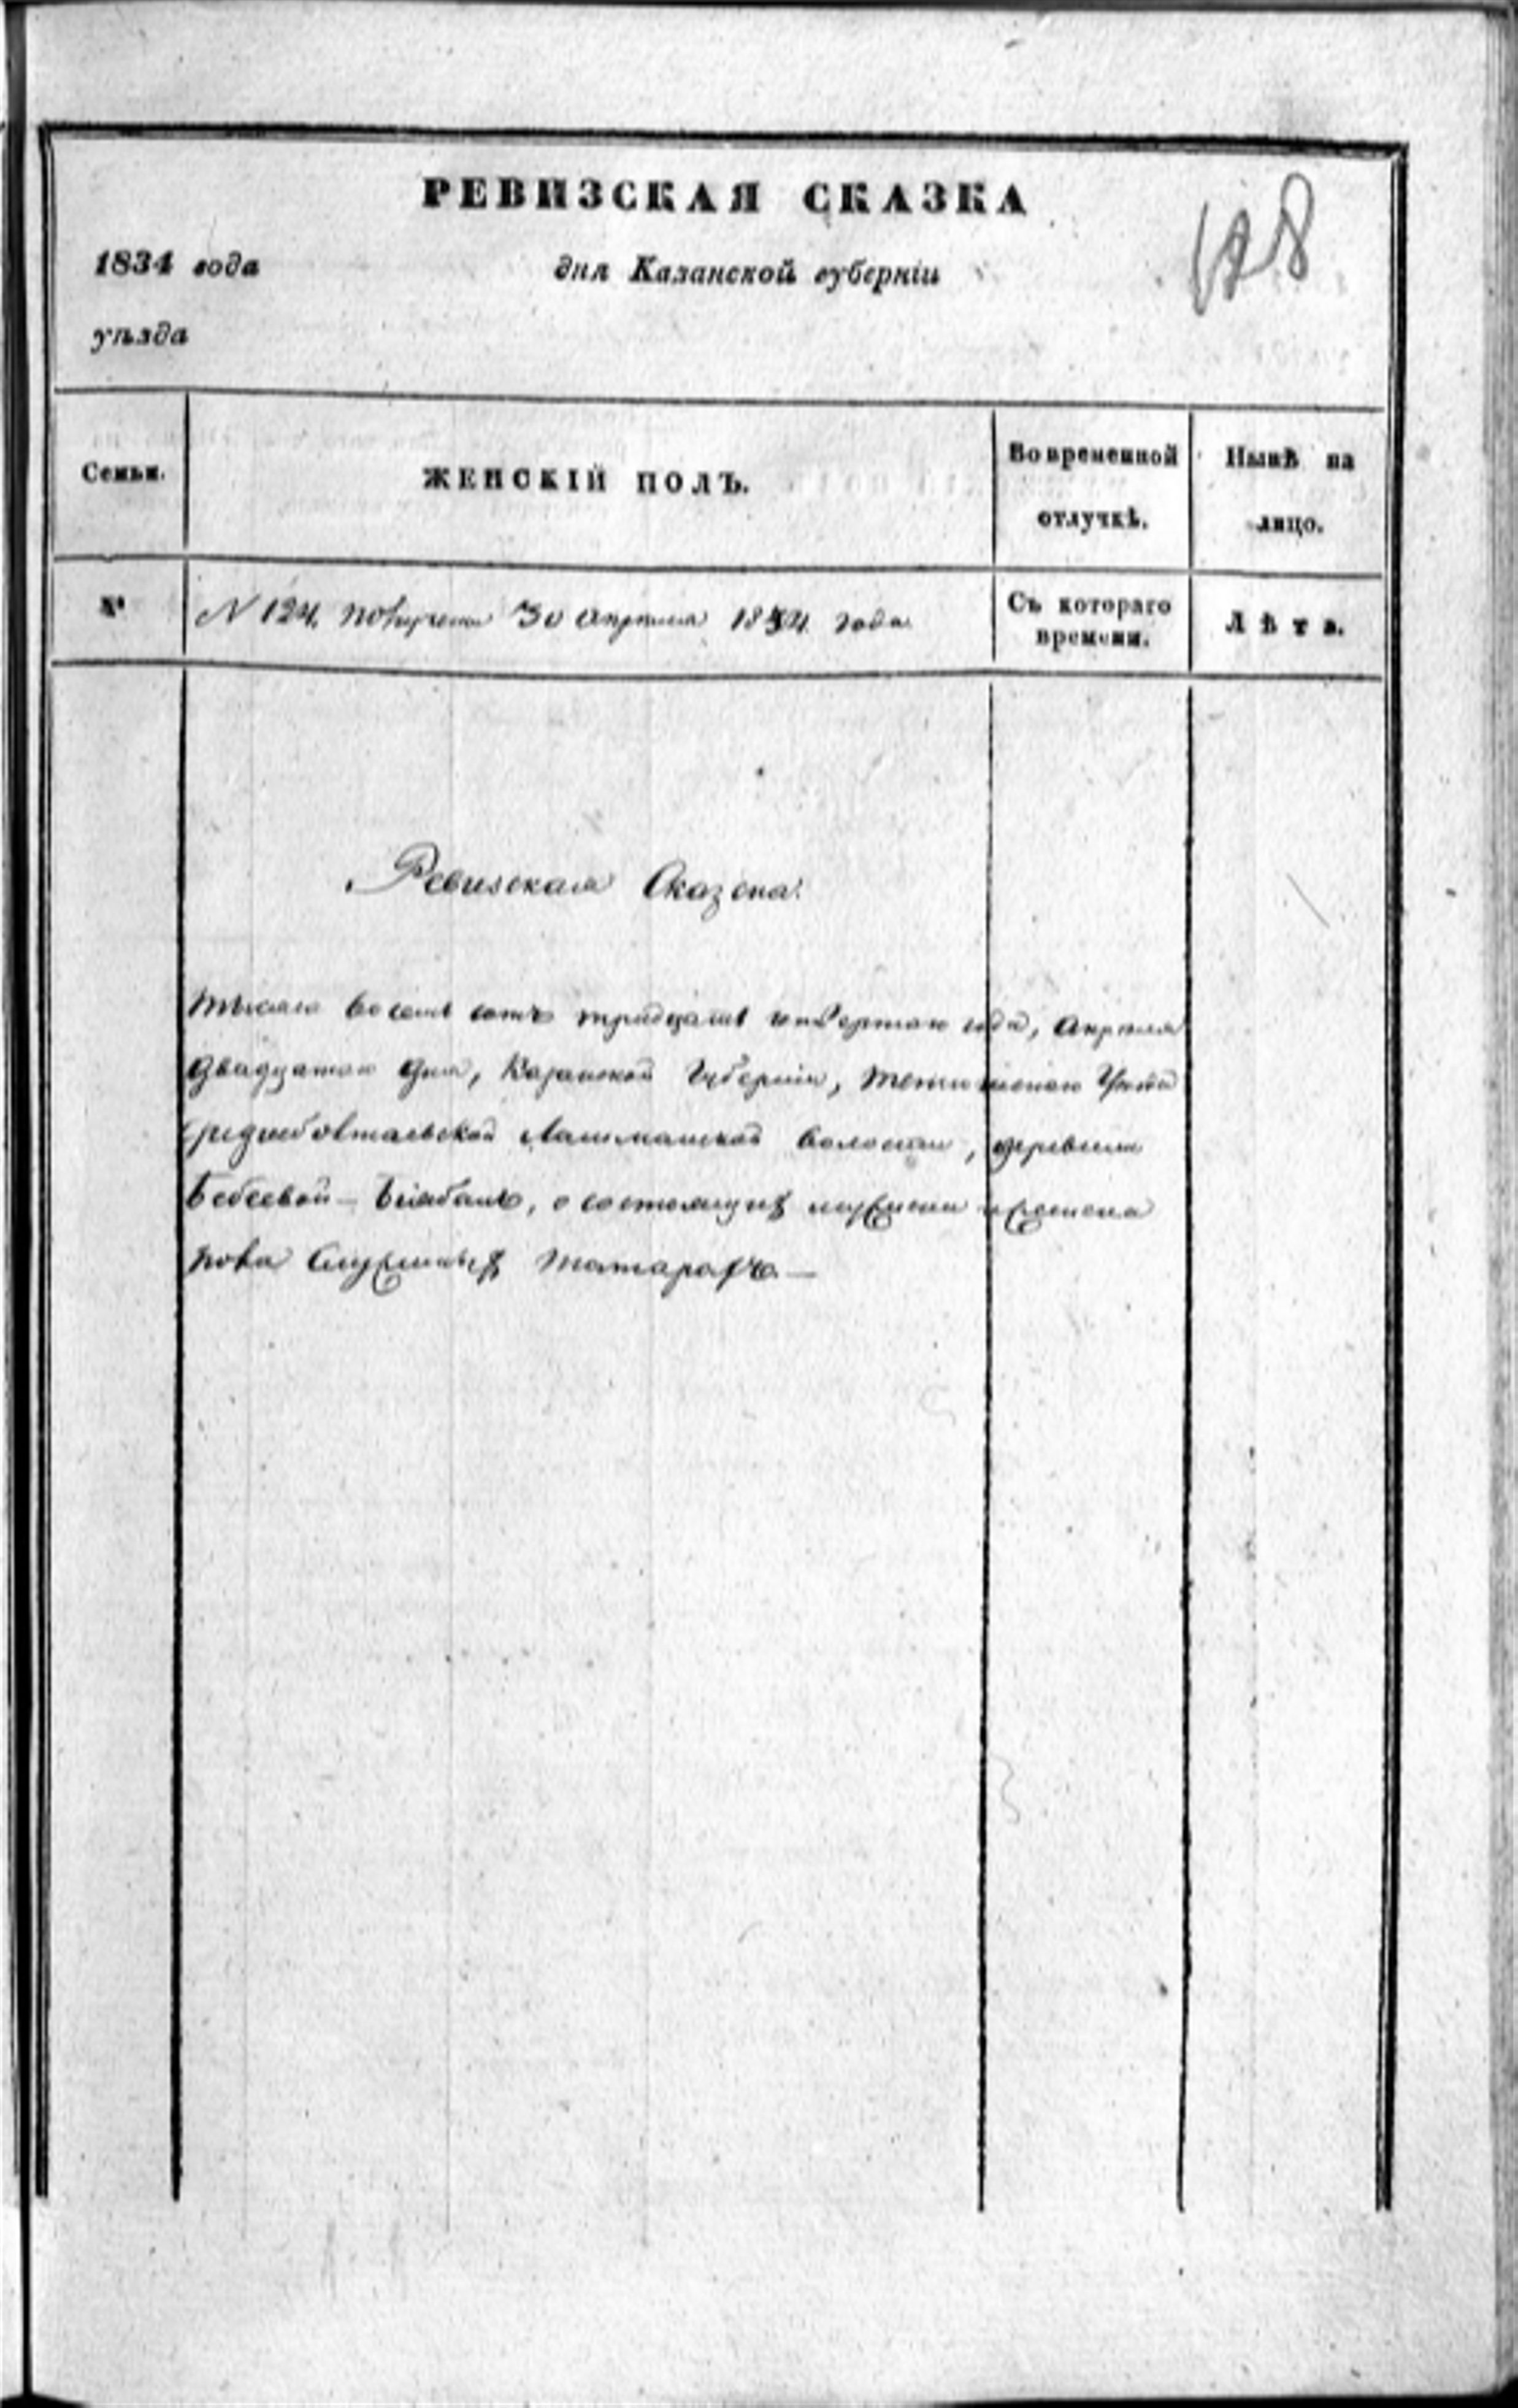 РЕВИЗСКАЯ СКАЗКА
128
1834 года дня Казанской губерніи
уѣзда
Семьи. ЖЕНСКІЙ ПОЛЪ. Во временной отлучкѣ. Нынѣ на лицо.
№ N 124. получена 30 апреля 1834 года Съ котораго времени. Лѣта.
Ревизская Сказка.
Тысяча восемь сотъ тридцать четвертаго года, Апреля
двадцатаго дня, Казанской Губерніи, Тетюшскаго Уезда
Лашманской волости, деревни
Бебеевой-, о состоящихъ мужеска и женска
пола служилыхъ татарахъ.—